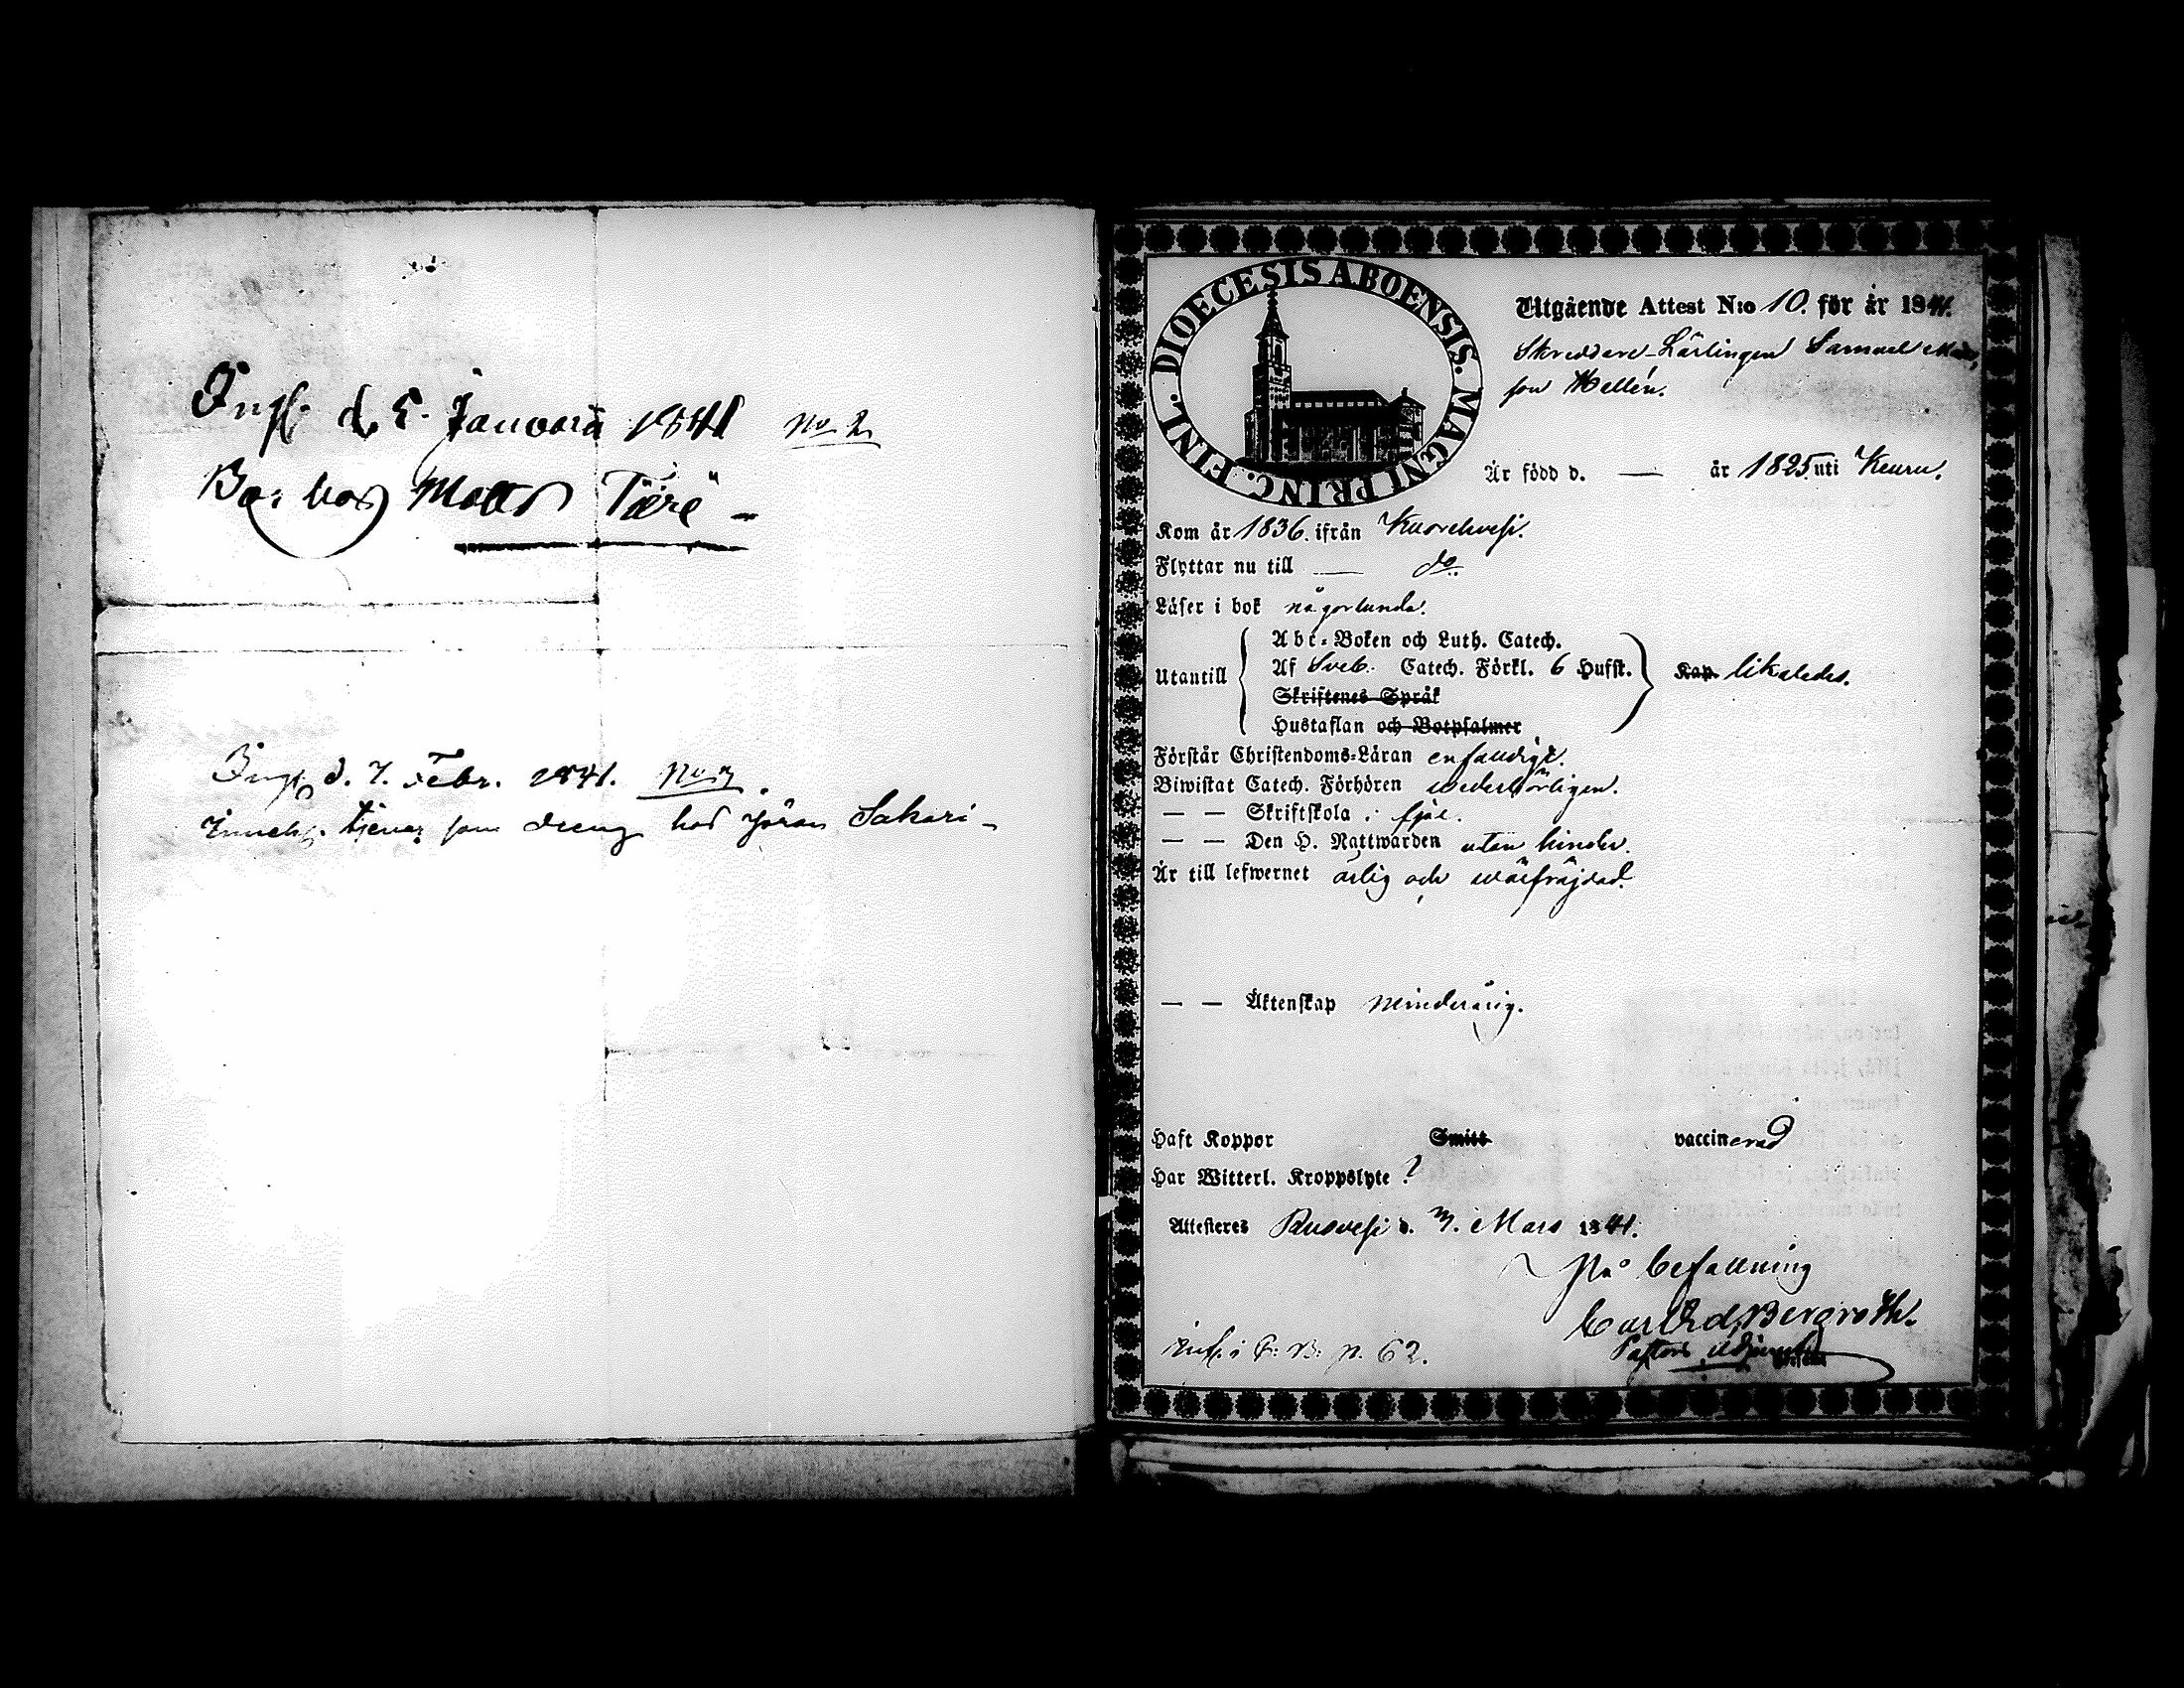 Ingf. d. 5. Januarii 1841 No 2
Bor hos Matts Tiere -
Ingf. d. 7. Febr. 1841. No 3.
tjenar som dreng hos Jöran Sakari -
DIOECESIS ABOENSIS. MAGNI PRINC. FINL.
Utgående Attest N:o 10. för år 1841.
Skreddare-Lärlingen Samuel Matts
son Hellén.
Är född d. — år 1825. uti Keuru.
Kom år 1836. ifrån Kuorehvesi.
Flyttar nu till — do.
Läser i bok någorlunda.
Utantill
Abc-Boken och Luth. Catech.
Af Sveb. Catech. Förkl. 6 Hufst.
Skriftenes Språk
Hustaflan och Botpsalmer
Kap. likaledes.
Förstår Christendoms-Läran enfaldigt.
Biwistat Catech. Förhören wederbörligen.
— — Skriftskola. ej.
— — Den H. Nattwarden utan hinder.
Är till lefwernet ärlig och wälfräjdad.
— — Äktenskap Minderårig.
Haft Koppor Smitt vaccinerad
Har Witterl. Kroppslyte ?
Attesteras Ruovesi d. 3. Mars 1841.
På befallning
Carl Ed. Bergroth.
Pastors Adjunct
inf. i C: B: p. 62.